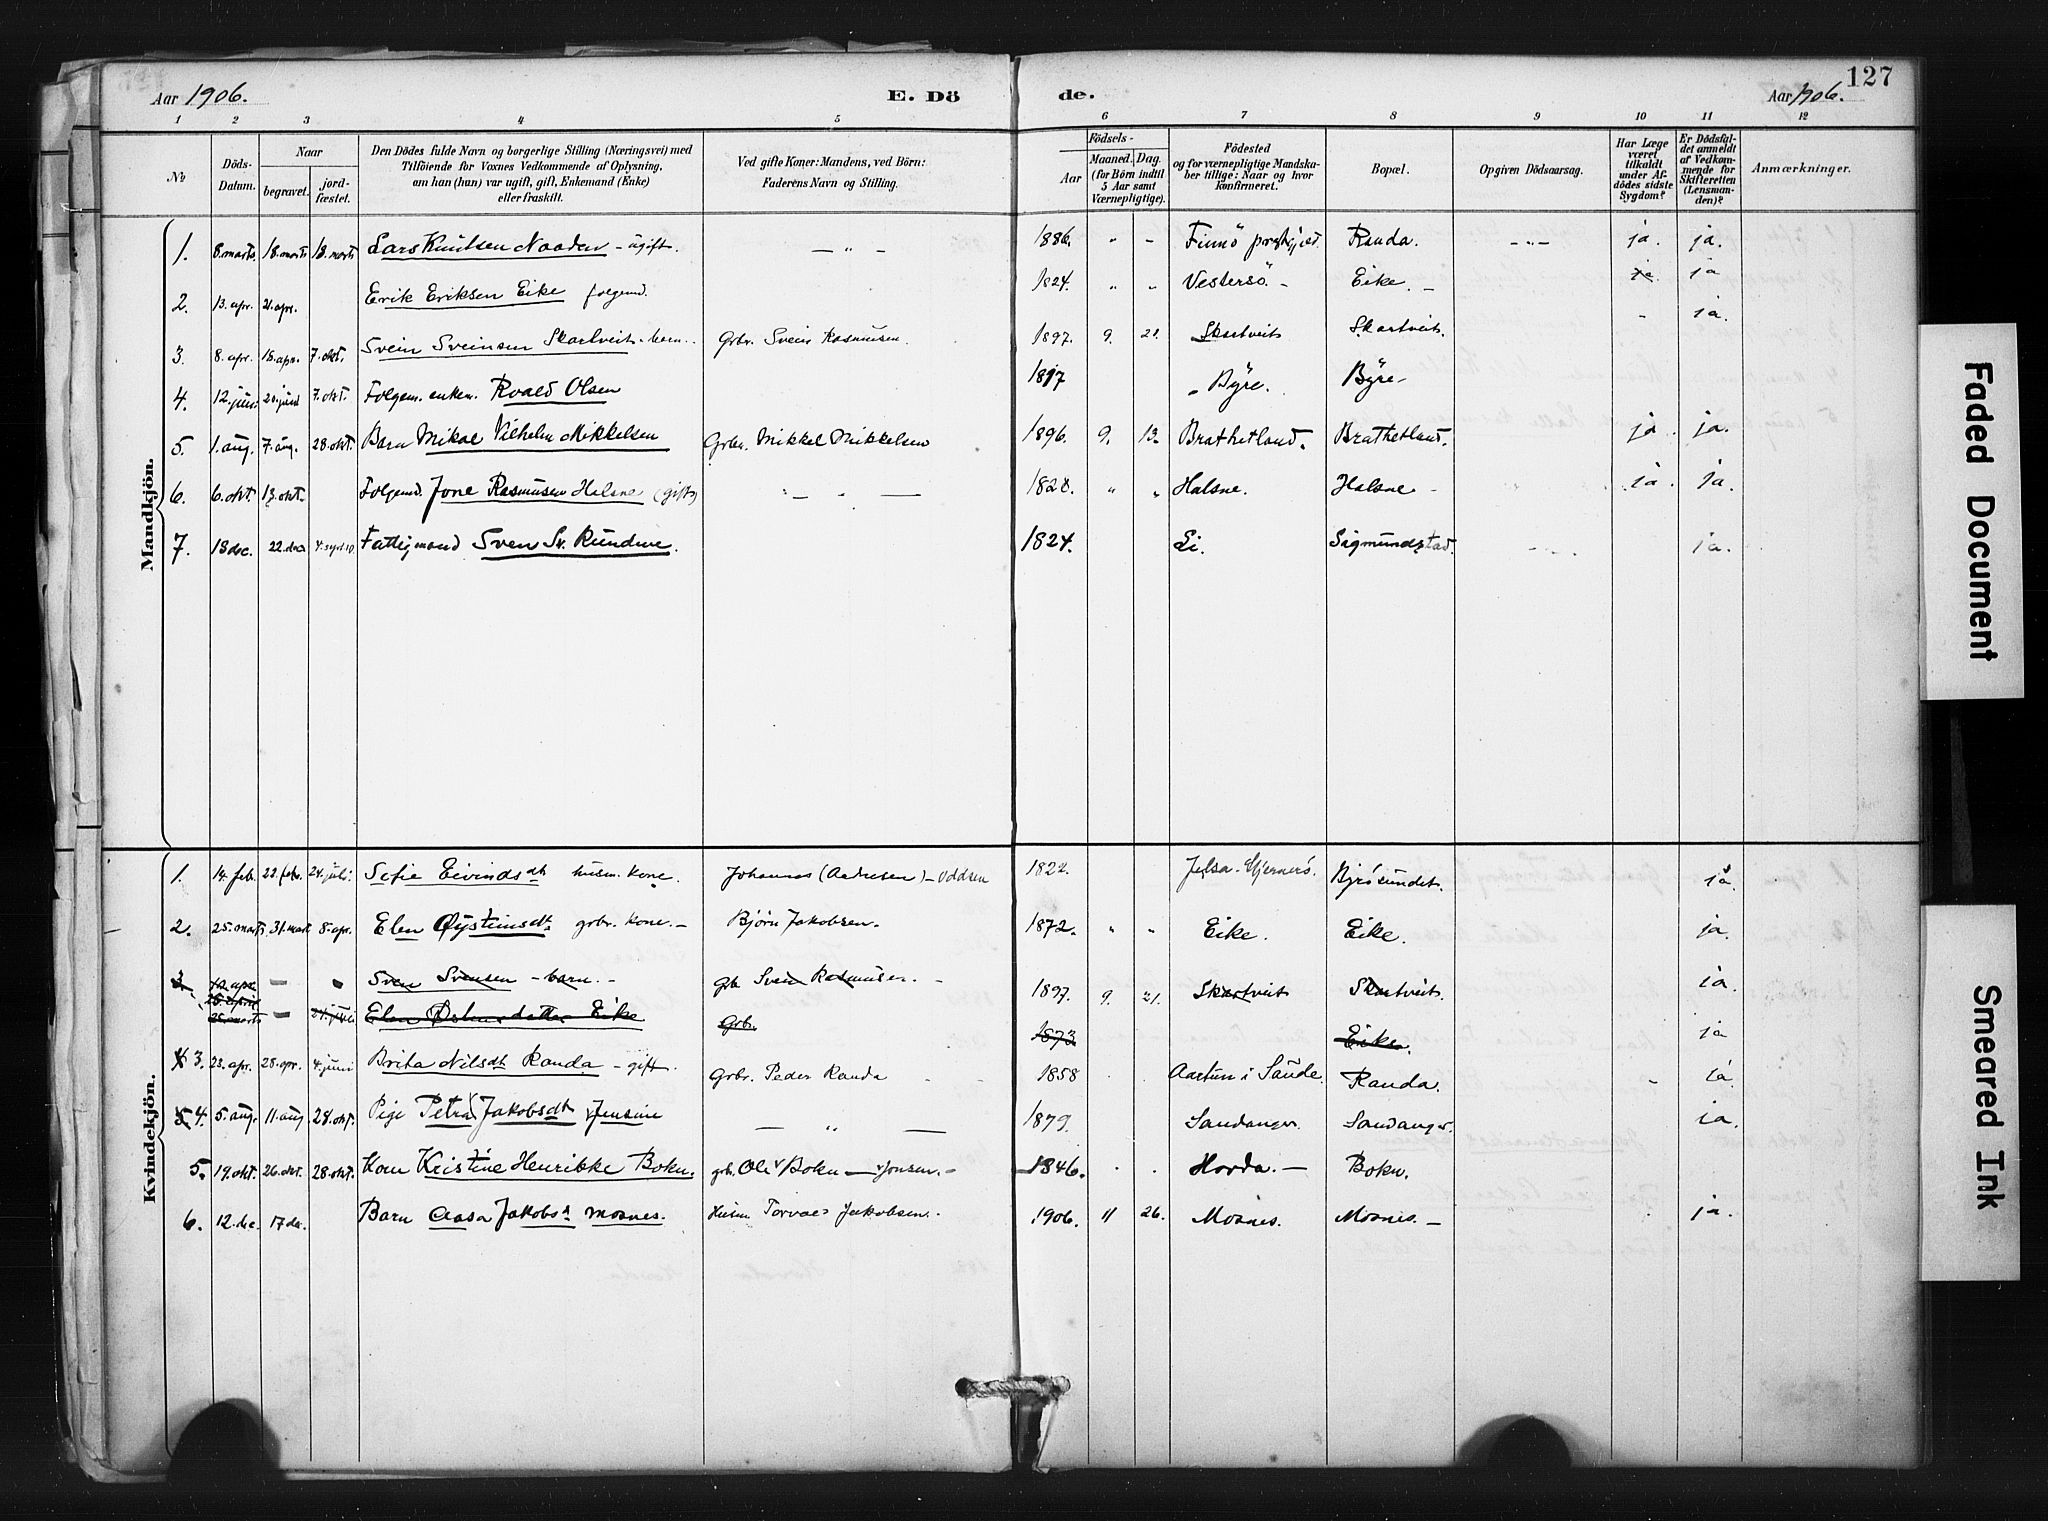 127
Aar 1906. E. Dö de. Aar 1906.
1 2 3 4 5 6 7 8 9 10 11 12
No
Döds-Datum.
Naar
begravet.
jord-fæstet.
Den Dödes fulde Navn og borgerlige Stilling (Næringsvei) med
Tilföiende for Voxnes Vedkommende af Oplysning,
om han (hun) var ugift, gift, Enkemand (Enke)
eller fraskilt.
Ved gifte Koner: Mandens, ved Börn:
Faderens Navn og Stilling.
Födsels-
Aar
Maaned. Dag.
(for Börn indtil
5 Aar samt
Værnepligtige).
Födested
og for værnepligtige Mandska-
ber tillige: Naar og hvor
konfirmeret.
Bopæl.
Opgiven Dödsaarsag.
Har Læge
været
tilkaldt
under Af-
dödes sidste
Sygdom?
Er Dödsfal-
det anmeldt
af Vedkom-
mende for
Skifteretten
(Lensman-
den)?
Anmærkninger.
Mandkjön.
1. 8. marts. 18. marts 18. marts Lars Knutsen Naaden - ugift. — „ — 1886. „ - Finnö prstgjeld. Randa. -„- ja. ja.
2. 13. apr. 21. apr. Erik Eriksen Eike folgemd. 1824. „ „ Vestersö. - Eike. - ja ja
3. 8. apr. 15. apr. 7. okt. Svein Sveinsen Skartveit - barn. Grbr. Svein Rasmusen. 1897. 9. 21. Skartveit Skartveit. - ja.
4. 12. juni 20. juni 7. okt. Folgem. enkem. Roald Olsen 1817 „ Byre. Byre -
5. 1. aug. 7. aug. 28. okt. Barn Mikal Vilhelm Mikkelsen Grbr. Mikkel Mikkelsen 1896. 9. 13. Brathetland. Brathetland. ja. ja.
6. 6. okt. 13. okt. Folgemd. Jone Rasmusen Halsne (gift) 1820. „ „ Halsne. Halsne - ja. ja.
7. 18 dec. 22. dec Fattigmand Sven Sv. 1824. Li. Sigmundstad. ja.
Kvindekjön.
1. 14. feb. 22. feb. 24. juli. Sofie Eivindsdt husm. kone. Johannes - Oddsen 1822. Jelsa - Hjernerö. Byrösundet. ja.
2. 25. marts 31. mart 8. apr. Elen Øysteinsdt. grbr. kone. - Bjørn Jakobsen. 1872. „ „ Eike. Eike. ja.
3 Sven Svensen - barn. - gb Sven Rasmusen - 1897. 9. 21. Skartveit Skartveit. ja.
25. marts 21. juni Elen Østensdatter Eike Grbr. 1873 Eike. ja
4 3. 23. apr. 28. apr. 4. juni Brita Nilsdt Randa - gift. Grbr. Peder Randa 1858 Aartun i Saude. Randa. - ja.
5 4. 5. aug. 11. aug 28. okt. Pige Petra Jakobsdt Jensine — „ — 1879. Sandanger. Sandanger. ja.
5. 19. okt. 26. okt. 28. okt. Kone Kristine Henrikke Bokn. grb. Ole Bokn - Jonsen. - 1846. Horda. - Bokn.
6. 12. dec 17 dec. Barn Aasa Jakobsd Mosnes. Husm Torvael Jakobsen. 1906. 11 26. Mosnes. Mosnes. - ja.
Faded Document
Smeared Ink